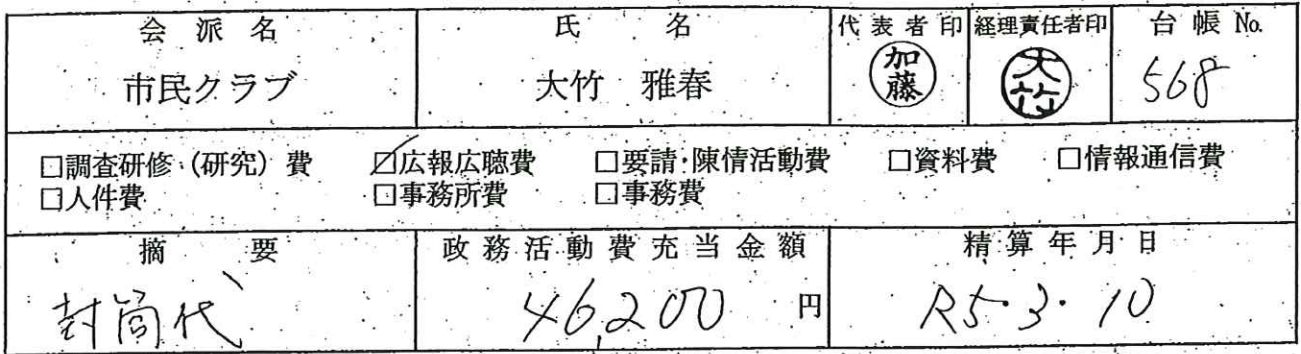 会派名 氏名 代表者印 経理責任者印 台帳No.
市民クラブ 大竹 雅春 加藤 大竹 568
□調査研修(研究)費 ☑広報広聴費 □要請・陳情活動費 □資料費 □情報通信費
□人件費 □事務所費 □事務費
摘要 政務活動費充当金額 精算年月日
封筒代 46,200円 R5.3.10